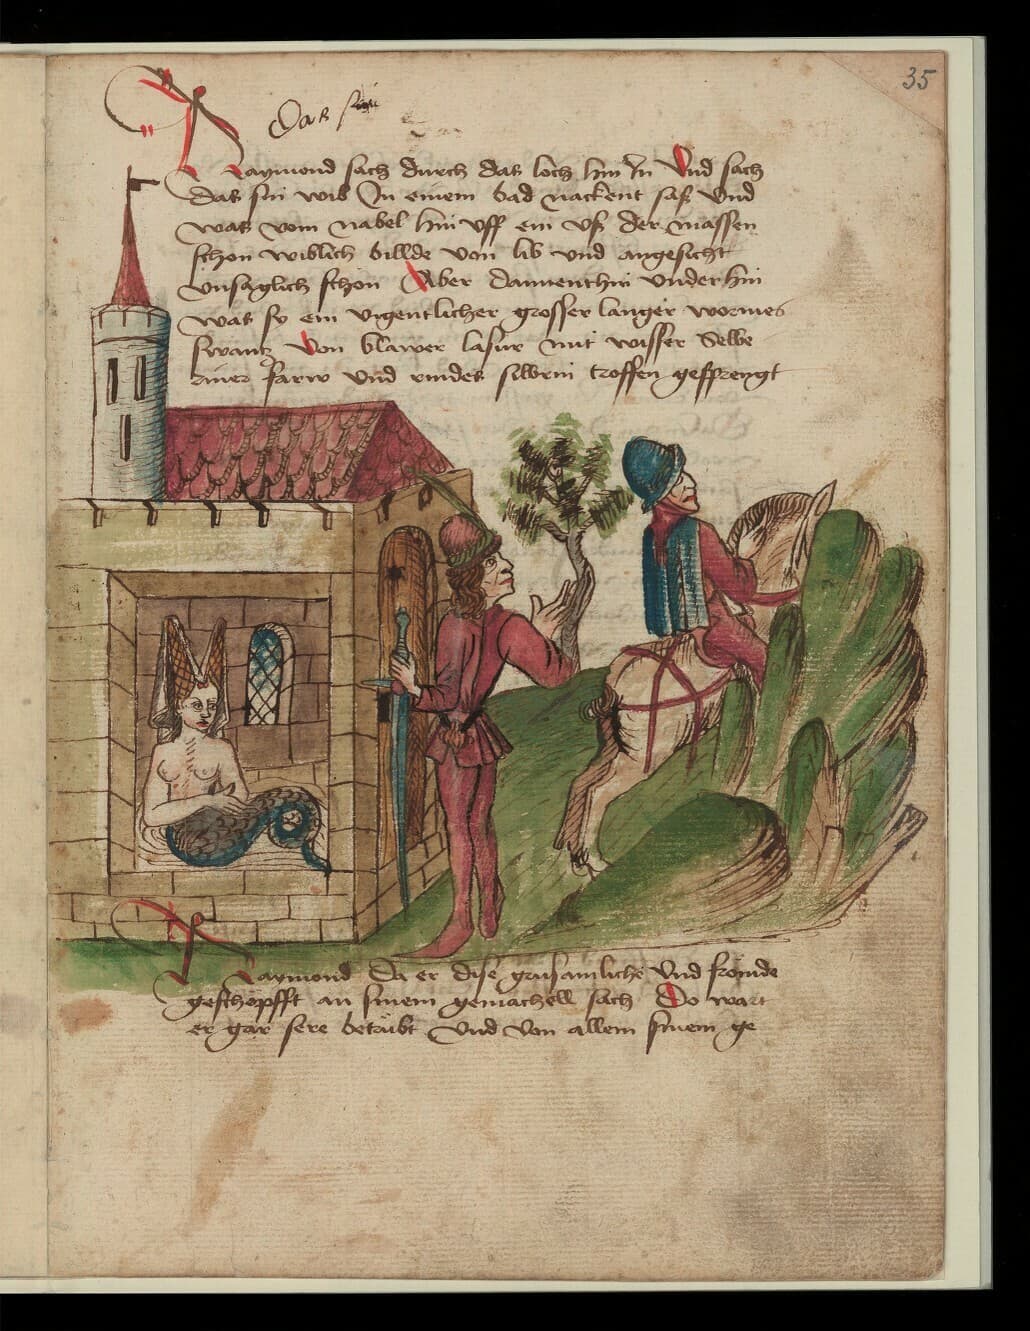 35
Das sin
Raymond sach durch das loch hin In Vnd sach
das sin wib In einem bad nackent sass Vnd
was vom nabel hin vff ein vss der massen
schon wiblich billde von lib vnd angesicht
vnsaglich schon Aber dannenthin vnderhin
was sy ein eigentlicher grosser langer wormes
swantz Von blawer lasur mit wisser Selbe
riner farw vnd runder silbrin troffen gesprengt
Raymond Da er dise grusamliche Vnd frömde
geschöpfft an sinem gemachell sach Do wart
er gar sere betrübt Vnd von allem sinem ge